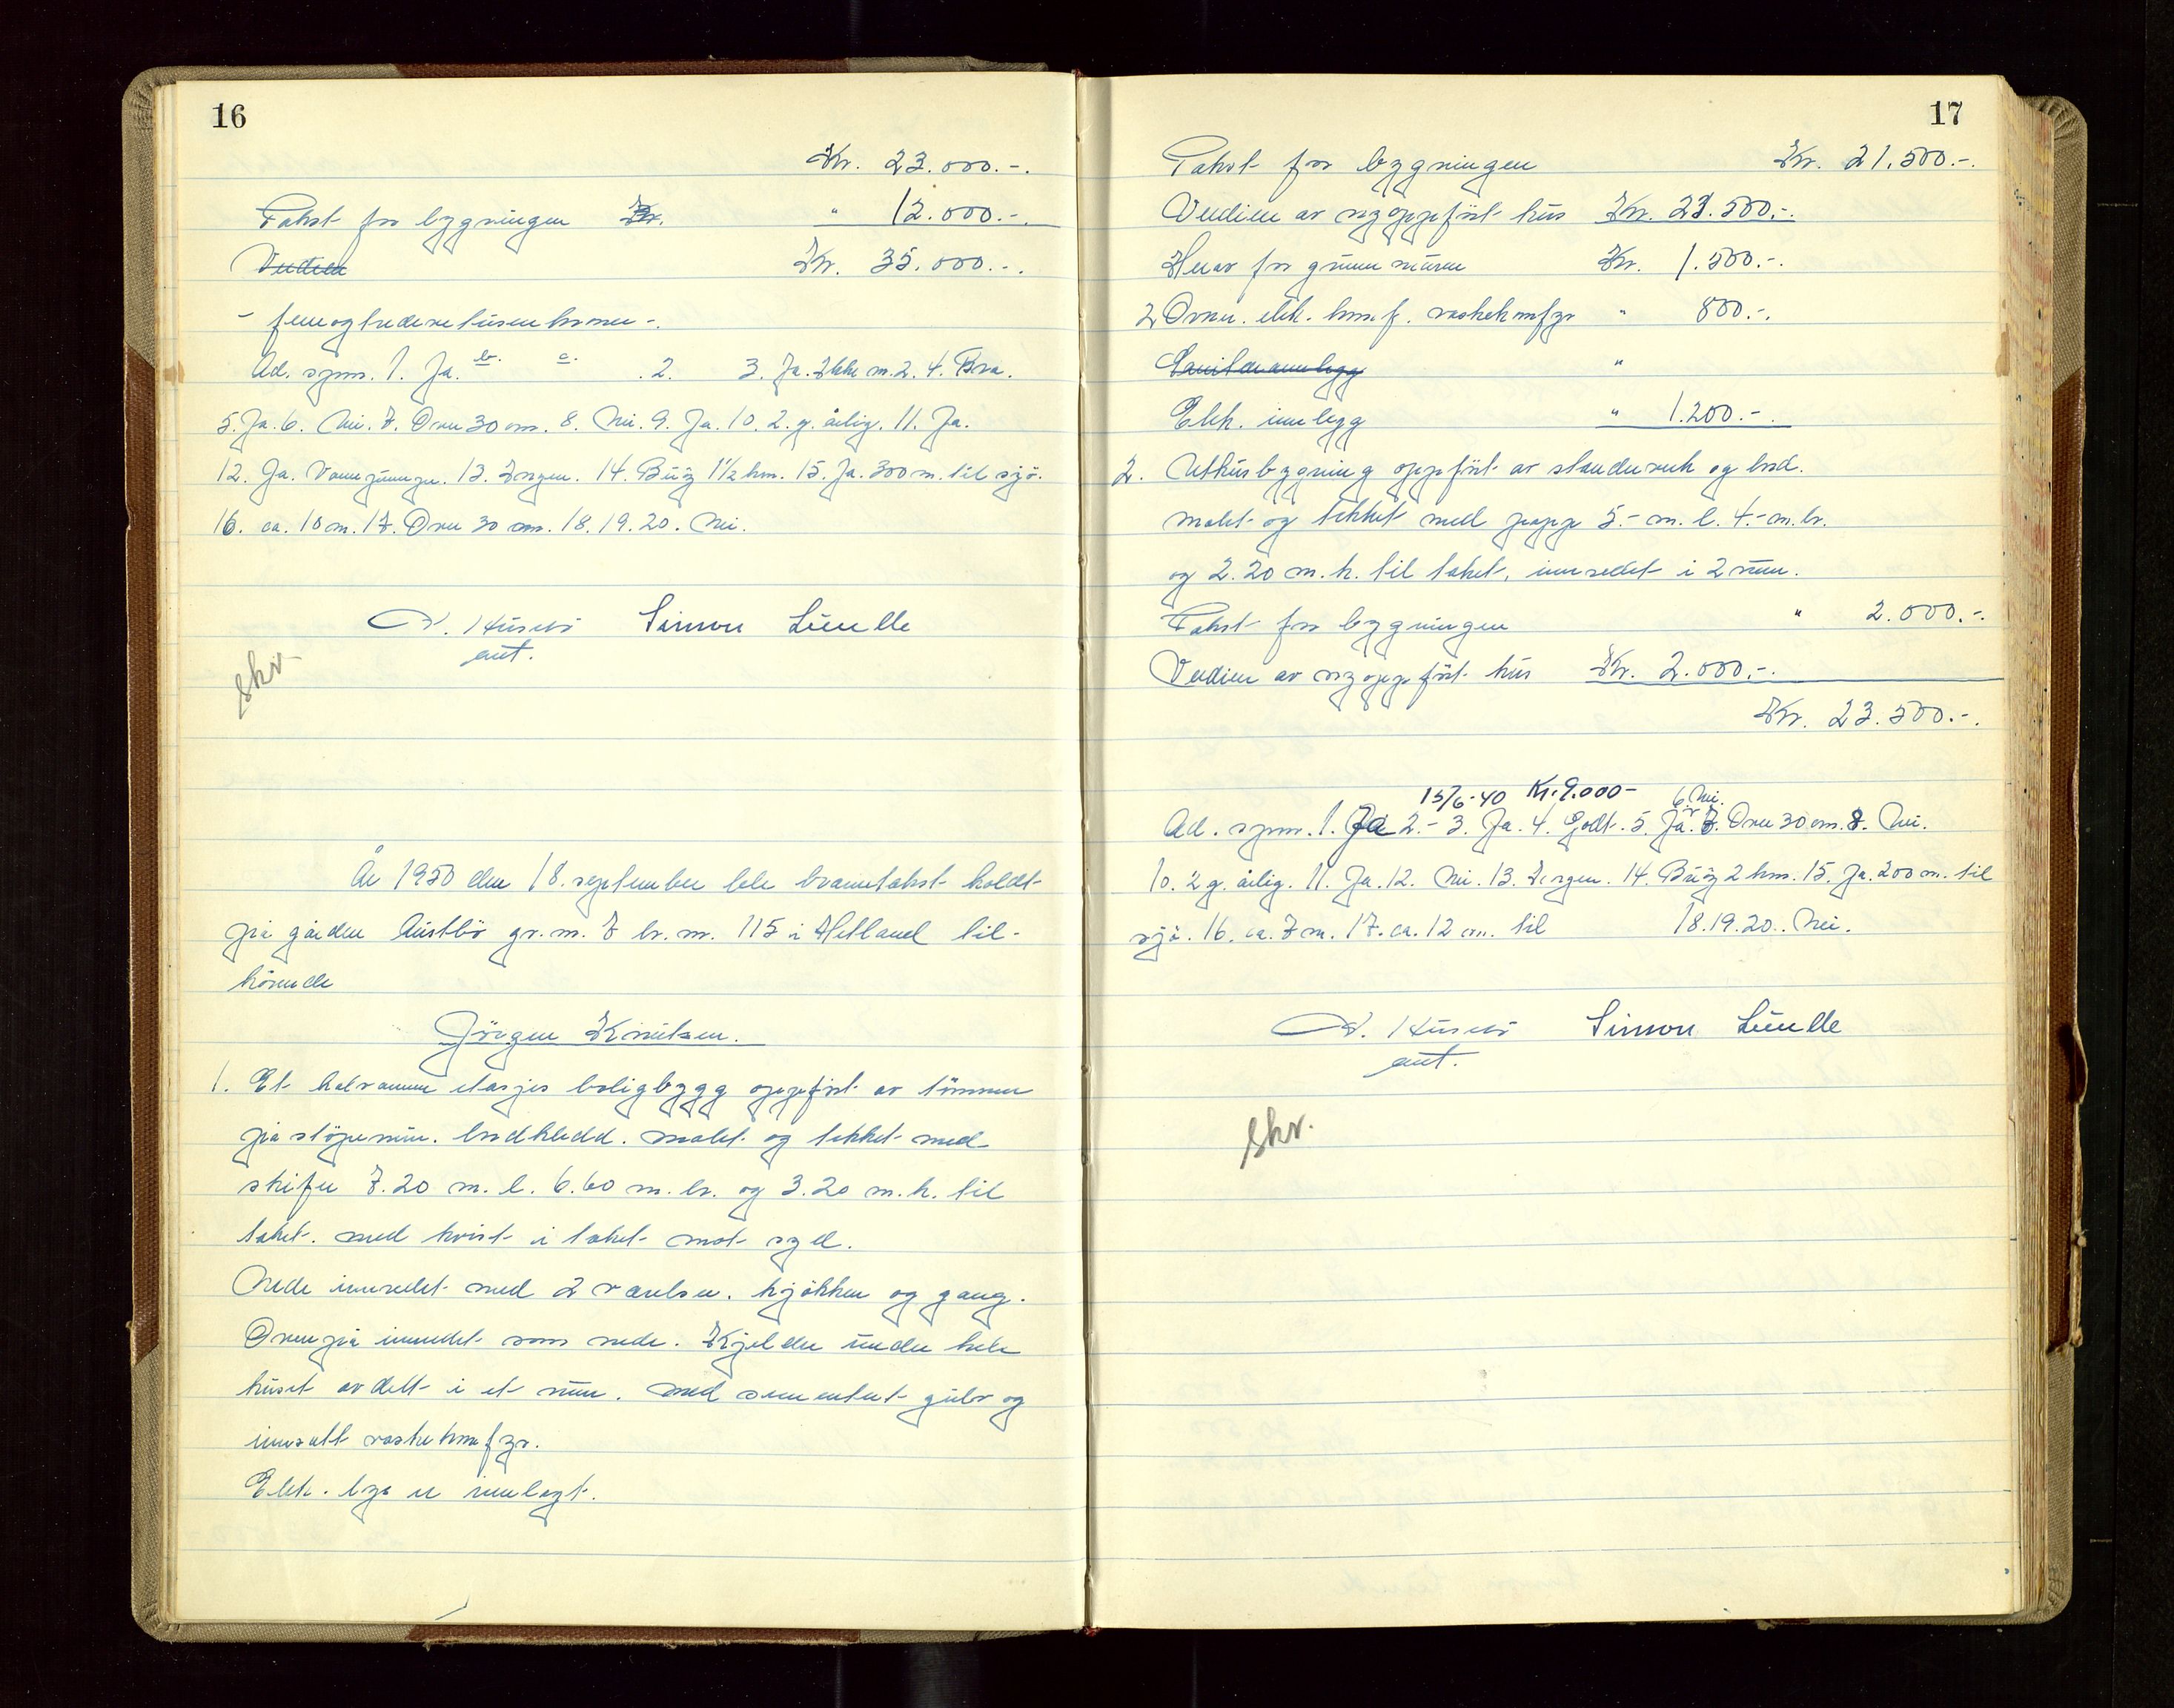 16
Kr. 23.000.-.
Takst for bygningen Kr. " 12.000.-.
Verdien Kr. 35.000.-.
- femogtredevetusen kroner -.
Ad. spm. 1. Ja. b. c. 2. 3. Ja. Ikke m. 2. 4. Bra.
5. Ja. 6. Nei. 7. Over 30 cm. 8. Nei. 9. Ja. 10. 2. g. årlig. 11. Ja.
12. Ja. Vannpumpe. 13. Ingen. 14. Buøy 1½ km. 15. Ja. 300 m. til sjø.
16. ca. 10 m. 17. Over 30 cm. 18. 19. 20. Nei.
T. Husebø Simon Lunde
ant.
skr.
År 1950 den 18. september ble branntakst holdt
på gården Austbø gr. nr. 7 br. nr. 115 i Hetland til-
hørende
Jørgen Knutsen.
1. Et halvannen etasjes boligbygg oppført av tømmer
på støpemur. bordkledd. malt og tekket med
skifer 7.20 m. l. 6.60 m. br. og 3.20 m. h. til
taket. med kvist i taket mot syd.
Nede innredet med 2 værelser. kjøkken og gang.
Ovenpå innredet som nede. Kjelder under hele
huset avdelt i et rum. med sementert gulv og
innsatt vaskekomfyr.
Elek. lys er innlagt.
17
Takst for bygningen Kr. 21.500.-.
Verdien av nyoppført hus Kr. 23.500.-.
Herav for grunnmuren Kr. 1.500.-.
2 Ovner. elek. komf. vaskekomfyr " 800.-.
Sanitæranlegg "
Elek. innlegg " 1.200.-.
2. Uthusbygning oppført av stenderverk og bord.
malt og tekket med papp 5.- m. l. 4.- m. br.
og 2.20 m. h. til taket, innredet i 2 rum.
Takst for bygningen " 2.000.-.
Verdien av nyoppført hus Kr. 2.000.-.
Kr. 23.500.-.
15/6-40 Kr. 9.000- 6. Nei.
Ad. spm. 1. Ja 2.- 3. Ja. 4. Godt. 5. Ja. 7. Over 30 cm. 8. Nei.
10. 2 g. årlig. 11. Ja. 12. Nei. 13. Ingen. 14. Buøy 2 km. 15. Ja. 200 m. til
sjø. 16. ca. 7 m. 17. ca. 12 cm. til 18. 19. 20. Nei.
T. Husebø Simon Lunde
ant.
skr.